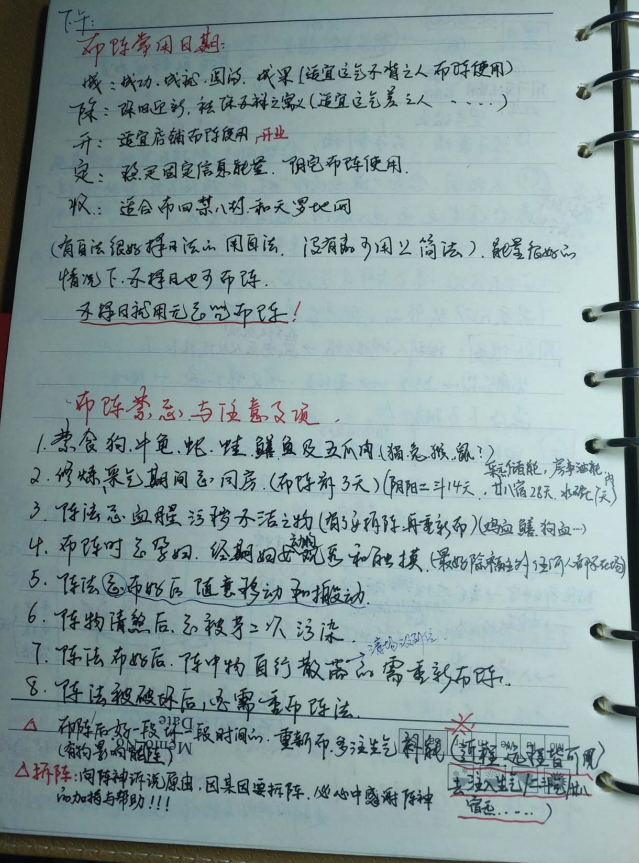 下午:
布阵常用日期:
成:成功、成就、圆满、成果(适宜运气不背之人布阵使用)
除:除旧迎新,祛除之寓义(适宜运气差之人.....)
开:适宜店铺布阵使用,开业
定:稳定固定信息能量.阴宅布阵使用.
收:适合布四禁八封.和天罗地网
(有日法很好择日法的用日法,没有的可用以简法).能量很好的
情况下.不择日也可布阵.
不择日就用元布阵!
布阵禁忌与注意事项.
1.禁食狗.牛龟.蛇.蛙.鳝鱼及五爪肉(猫.兔.猴.鼠?)
2.修炼,采气期间忌同房.(布阵前3天)(阴阳二斗14天,廿八宿28天.
3.阵法忌血腥污秽不洁之物(有了要拆阵.再重新布)(鸡血鳝.狗血…)
4.布阵时忌孕妇.经期妇女观看和触摸.
5.阵法忌布好后随意移动和搬动.
6.阵物清煞后.忌被第二次污染.
7.阵法布好后.阵中物自行散落的需重新布阵.
8.阵法被破坏后,必需重布阵法.
△布阵后好一段坏一段时间的.重新布.多注生气 (近程.远程皆可用)
(有物影响能阵) 去注入生气 廿八
△拆阵:向阵神诉说原由,因某因要拆阵.心中感谢阵神 宿.....)
的加持与帮助!!!